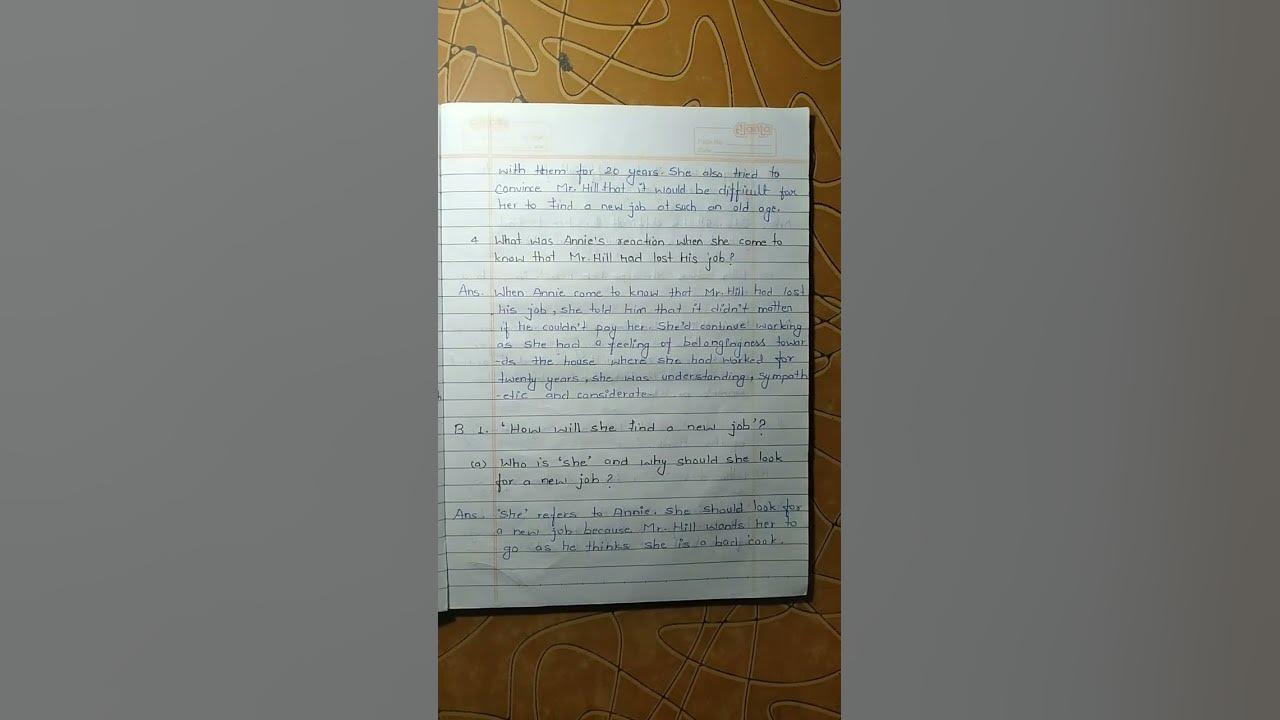 with them for 20 years. She also tried to
convince Mr. Hill that it would be difficult for
her to find a new job at such an old age.
4 What was Annie's reaction when she come to
know that Mr. Hill had lost his job?
Ans. When Annie come to know that Mr. Hill had lost
his job, she told him that it didn't matter
if he couldn't pay her. She'd continue working
as she had a feeling of belongingness towar
-ds the house where she had worked for
twenty years, she was understanding, sympath
-etic and considerate.
B 1. 'How will she find a new job'?
(a) Who is 'she' and why should she look
for a new job?
Ans. 'She' refers to Annie. She should look for
a new job because Mr. Hill wants her to
go as he thinks she is a bad cook.